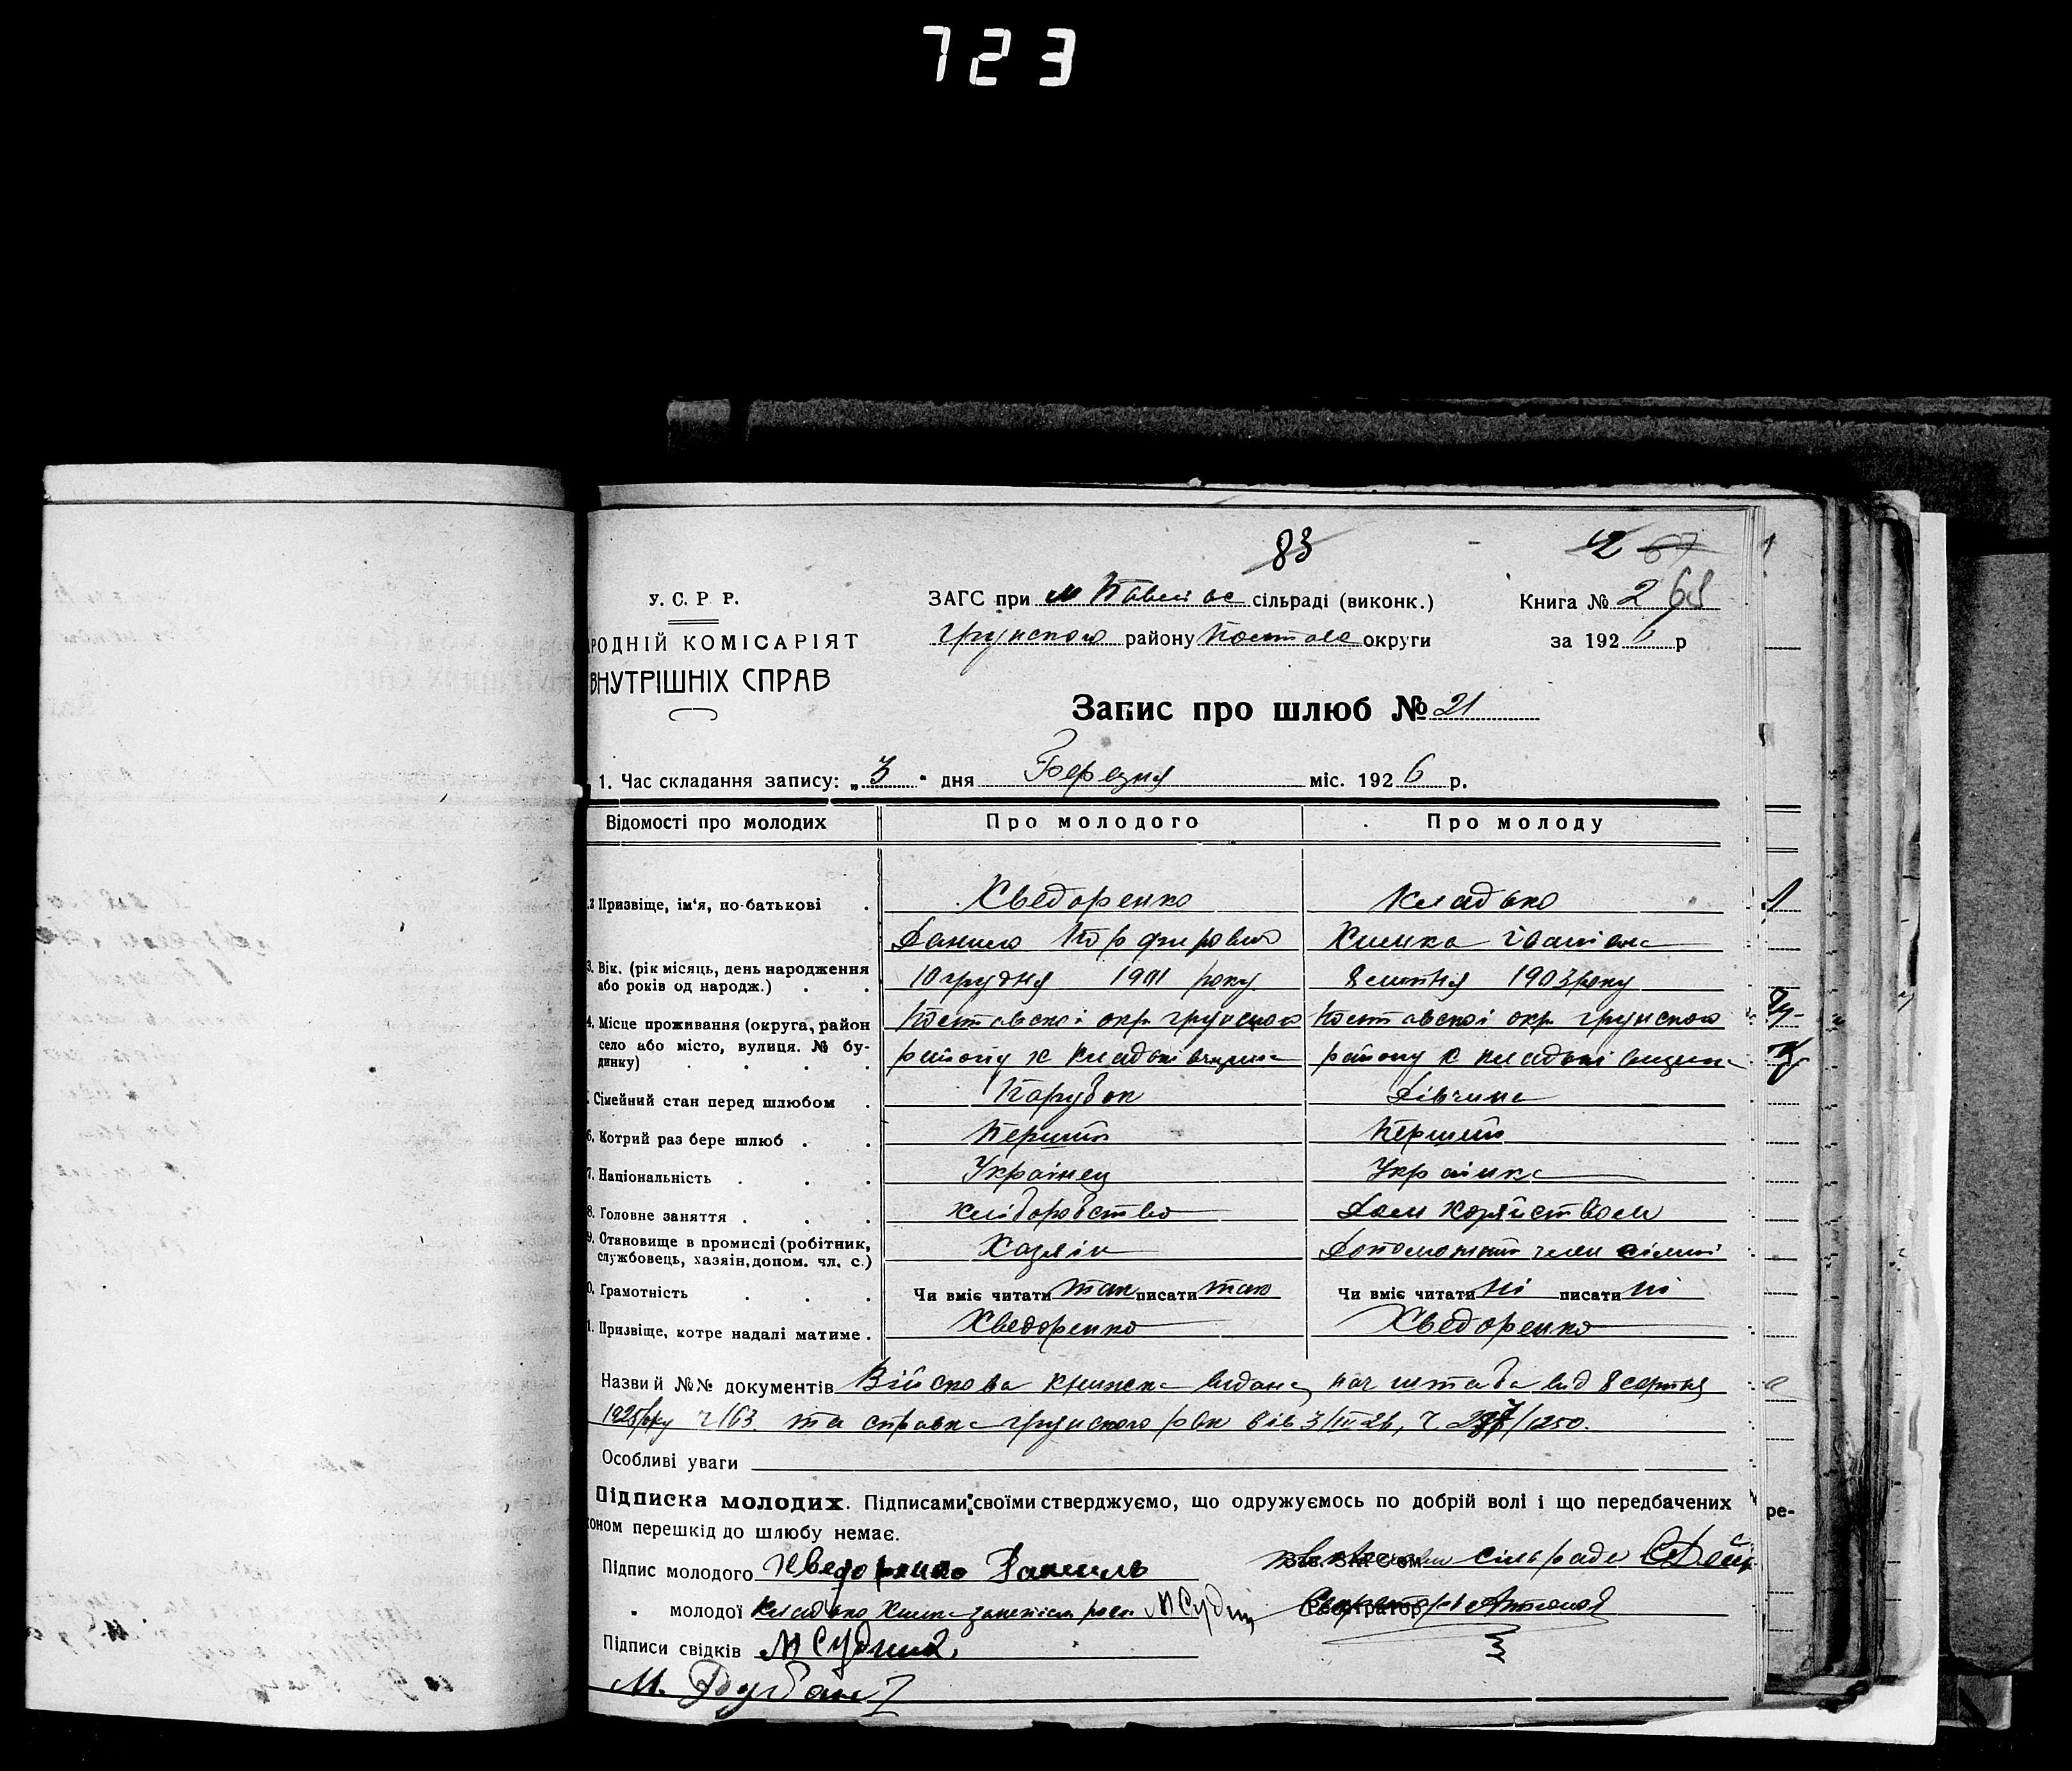 723
83
42 67
У. С. Р. Р.
ЗАГС при м сільраді (виконк.)
Книга № 2 68
РОДНІЙ КОМІСАРІЯТ
Грунського району Полтавс округи
за 192 6 р
ВНУТРІШНІХ СПРАВ
Запис про шлюб № 21
1. Час складання запису: „ 3 " дня Березня міс. 192 6 р.
Відомості про молодих Про молодого Про молоду
2 Призвіще, ім'я, по-батькові . Хведоренко Кладько
Данило Порфирович Химка Іванівна
3. Вік. (рік місяць, день народження
або років од народж.) . . 10 грудня 1901 року 1903 року
4. Місце проживання (округа, район Полтавської окр. Грунського Полтавської окр. Грунського
село або місто, вулиця. № бу-
динку) . . . . району х Кладьківщина району х Кладьківщина
Сімейний стан перед шлюбом . Парубок Дівчина
6. Котрий раз бере шлюб . . Перший Перший
7. Національність . . . Українец Українка
8. Головне заняття . . . хліборобство Дом хозяйством
9. Становище в промислі (робітник,
службовець, хазяін, допом. чл. с.) Хазяін Допоможний член сімьї
0. Грамотність . . . Чи вміє читати так писати так Чи вміє читати ні писати ні
1. Призвіще, котре надалі матиме . Хведоренко Хведоренко
Назви й №№ документів Військова книжка видана нач штаба від 8 серпня
1925 року ч 163. та справка Грунського рвк від 3/III 26, ч. /1250.
Особливі уваги
Підписка молодих. Підписами своїми стверджуємо, що одружуємось по добрій волі і що передбачених
коном перешкід до шлюбу немає.
Підпис молодого Хведоренко Данило сільради
„ молодої Кладько Химка М Судин
Підписи свідків М Судин
М.
ре-